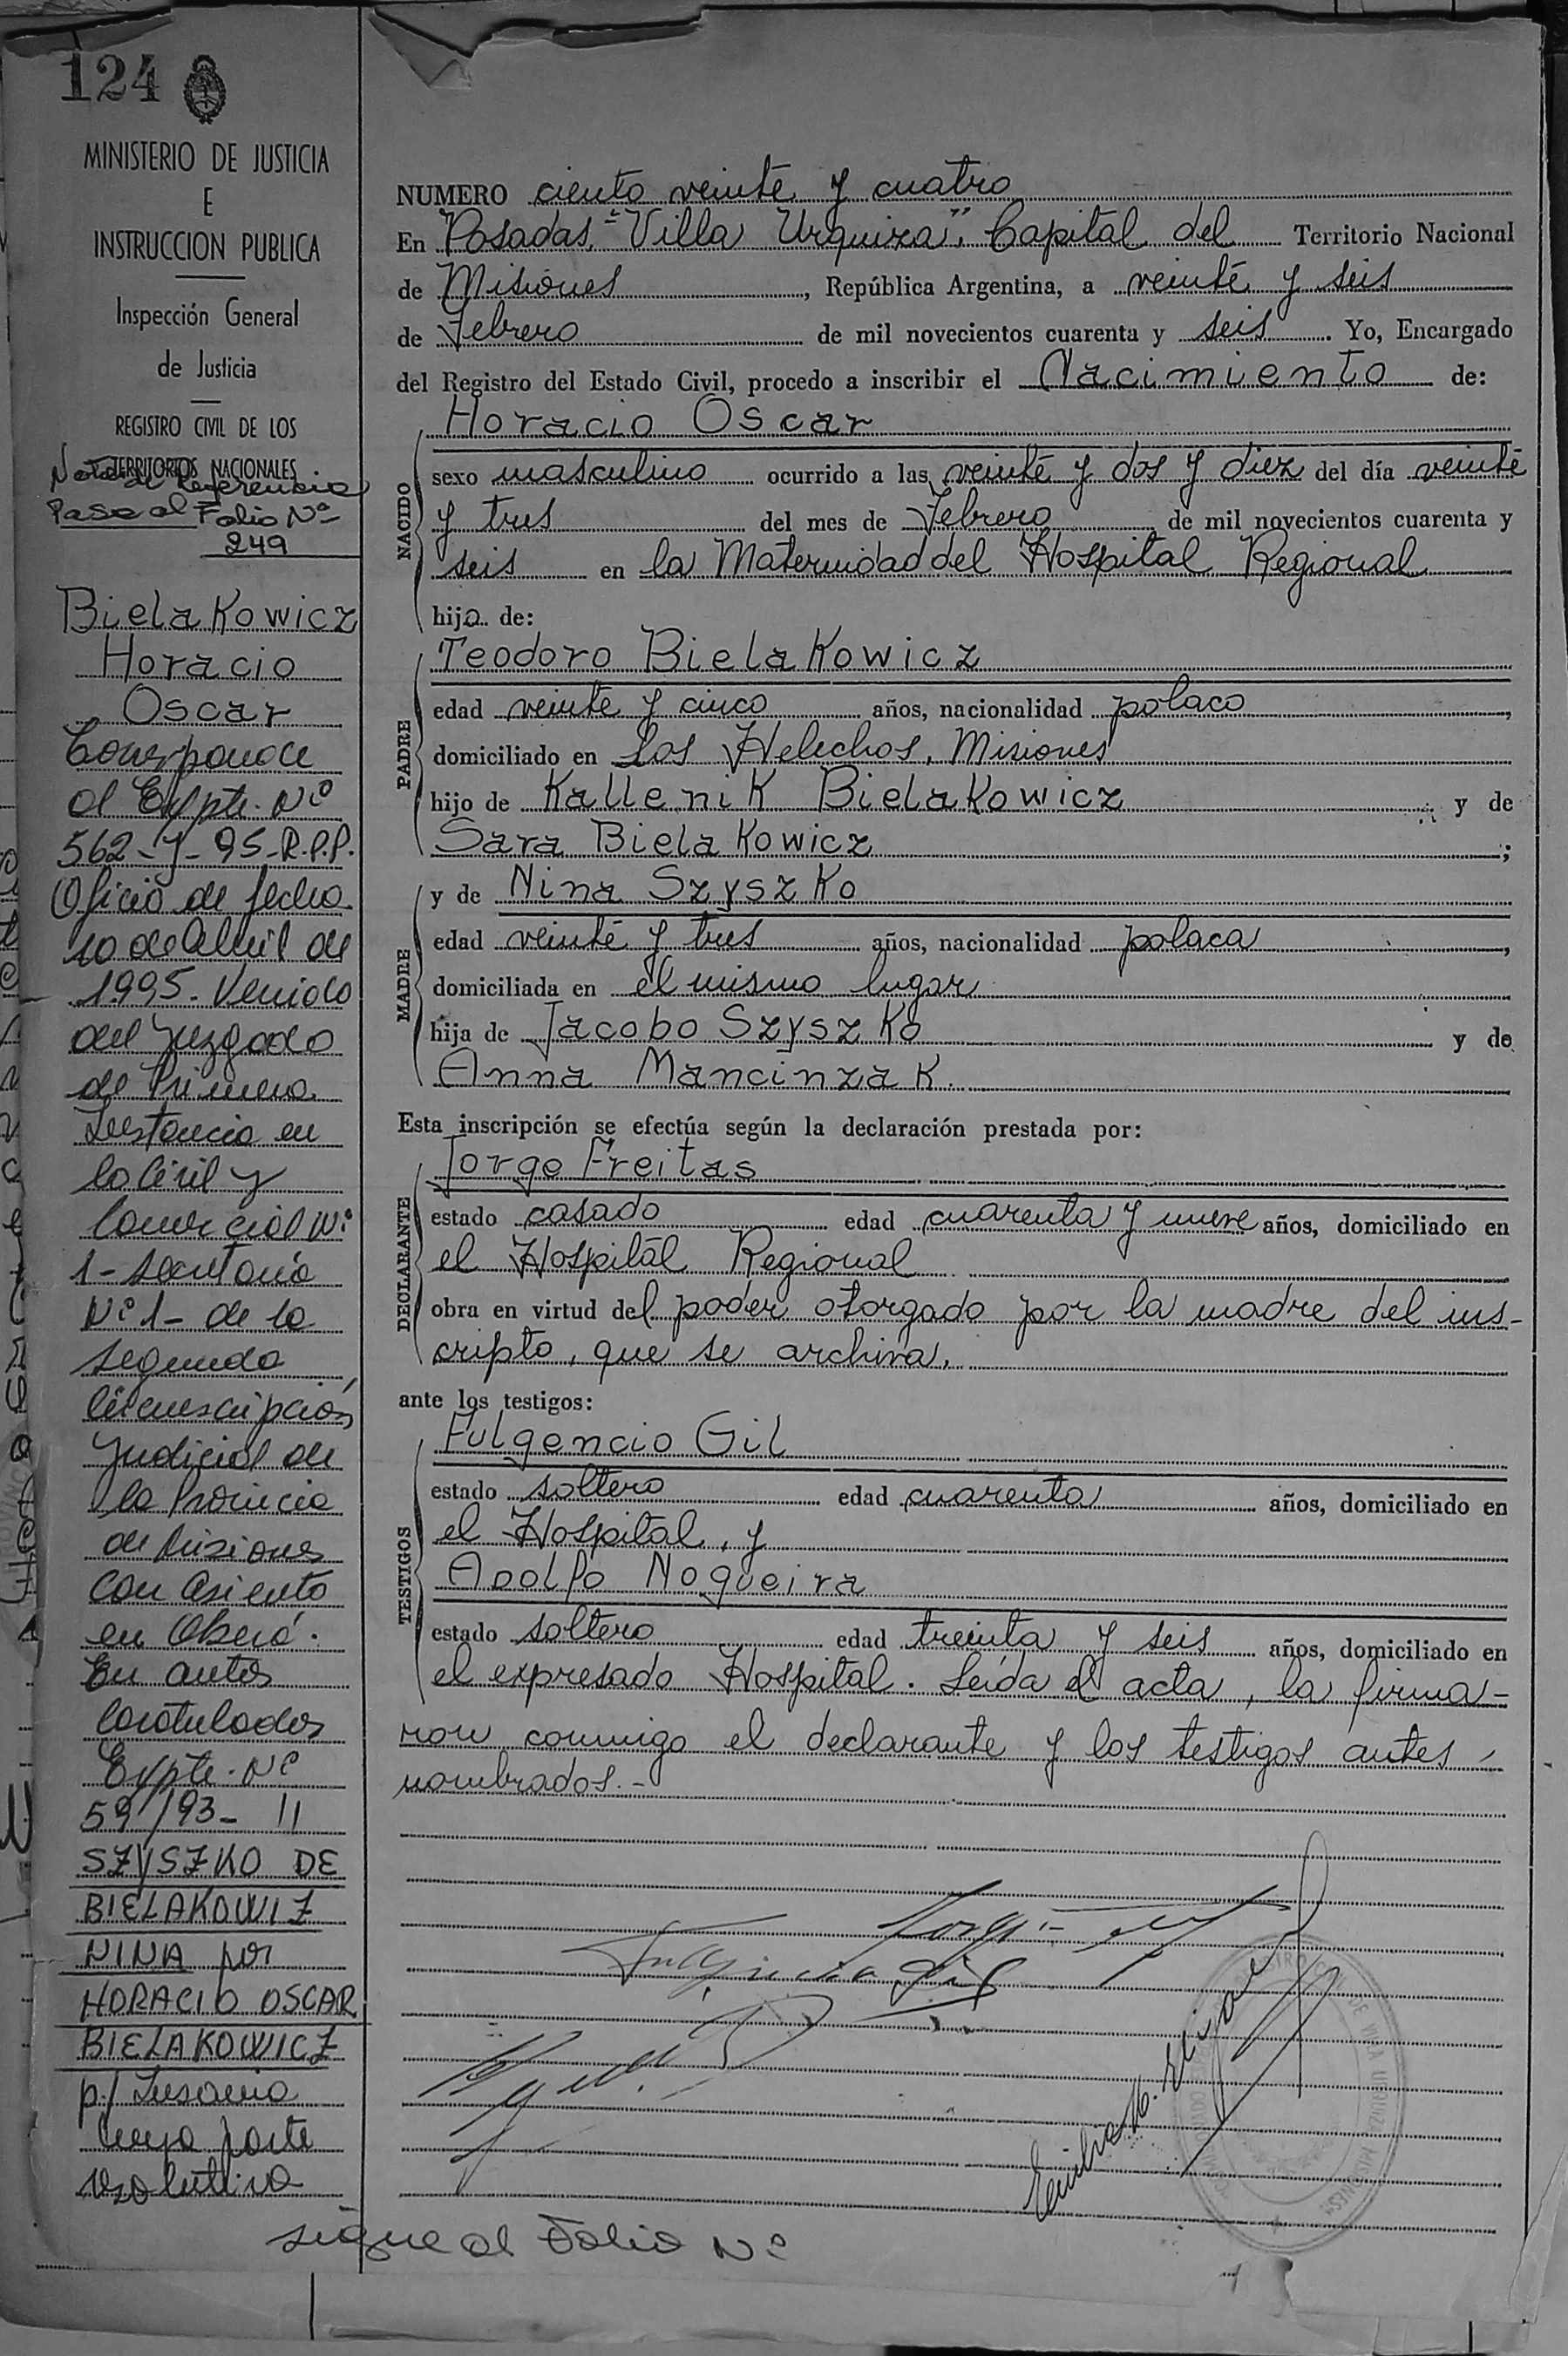 124
MINISTERIO DE JUSTICIA
E
INSTRUCCION PUBLICA
Inspección General
de Justicia
REGISTRO CIVIL DE LOS
TERRITORIOS NACIONALES
Nota de Referencia
Pasa al Folio Nº
249
Bielakowicz
Horacio
Oscar
Corresponde
al Expte. Nº
562-J-95-R.P.P.
Oficio de fecha
10 de Abril de
1995. Venido
del Juzgado
de Primera
Instancia en
lo Civil y
Comercial Nº
1- Secretaria
Nº 1- de la
segunda
Circunscripción
Judicial de
la Provincia
de Misiones
con asiento
en Oberá.
En autos
caratulados
Expte. Nº
59/93- "
SZYSZKO DE
BIELAKOWIZ
NINA por
HORACIO OSCAR
BIELAKOWICZ
p/ Insania
cuya parte
resolutiva
sigue al Folio Nº
NUMERO ciento veinte y cuatro
En Posadas, "Villa Urquiza", Capital del Territorio Nacional
de Misiones, República Argentina, a veinte y seis
de Febrero de mil novecientos cuarenta y seis. Yo, Encargado
del Registro del Estado Civil, procedo a inscribir el Nacimiento de:
NACIDO
Horacio Oscar
sexo masculino ocurrido a las veinte y dos y diez del día veinte
y tres del mes de Febrero de mil novecientos cuarenta y
seis en la Maternidad del Hospital Regional
hijo de:
PADRE
Teodoro Bielakowicz
edad veinte y cinco años, nacionalidad polaco,
domiciliado en Los Helechos, Misiones
hijo de Kallenik Bielakowicz y de
Sara Bielakowicz;
MADRE
y de Nina Szyszko
edad veinte y tres años, nacionalidad polaca,
domiciliada en el mismo lugar
hija de Jacobo Szyszko y de
Anna Mancinzak.
Esta inscripción se efectúa según la declaración prestada por:
DECLARANTE
Jorge Freitas
estado casado edad cuarenta y nueve años, domiciliado en
el Hospital Regional
obra en virtud del poder otorgado por la madre del ins-
cripto, que se archiva.
ante los testigos:
TESTIGOS
Fulgencio Gil
estado soltero edad cuarenta años, domiciliado en
el Hospital, y
Adolfo Nogueira
estado soltero edad treinta y seis años, domiciliado en
el expresado Hospital. Leída el acta, la firma-
ron conmigo el declarante y los testigos antes
nombrados.-
Jorge
Fulgencio Gil